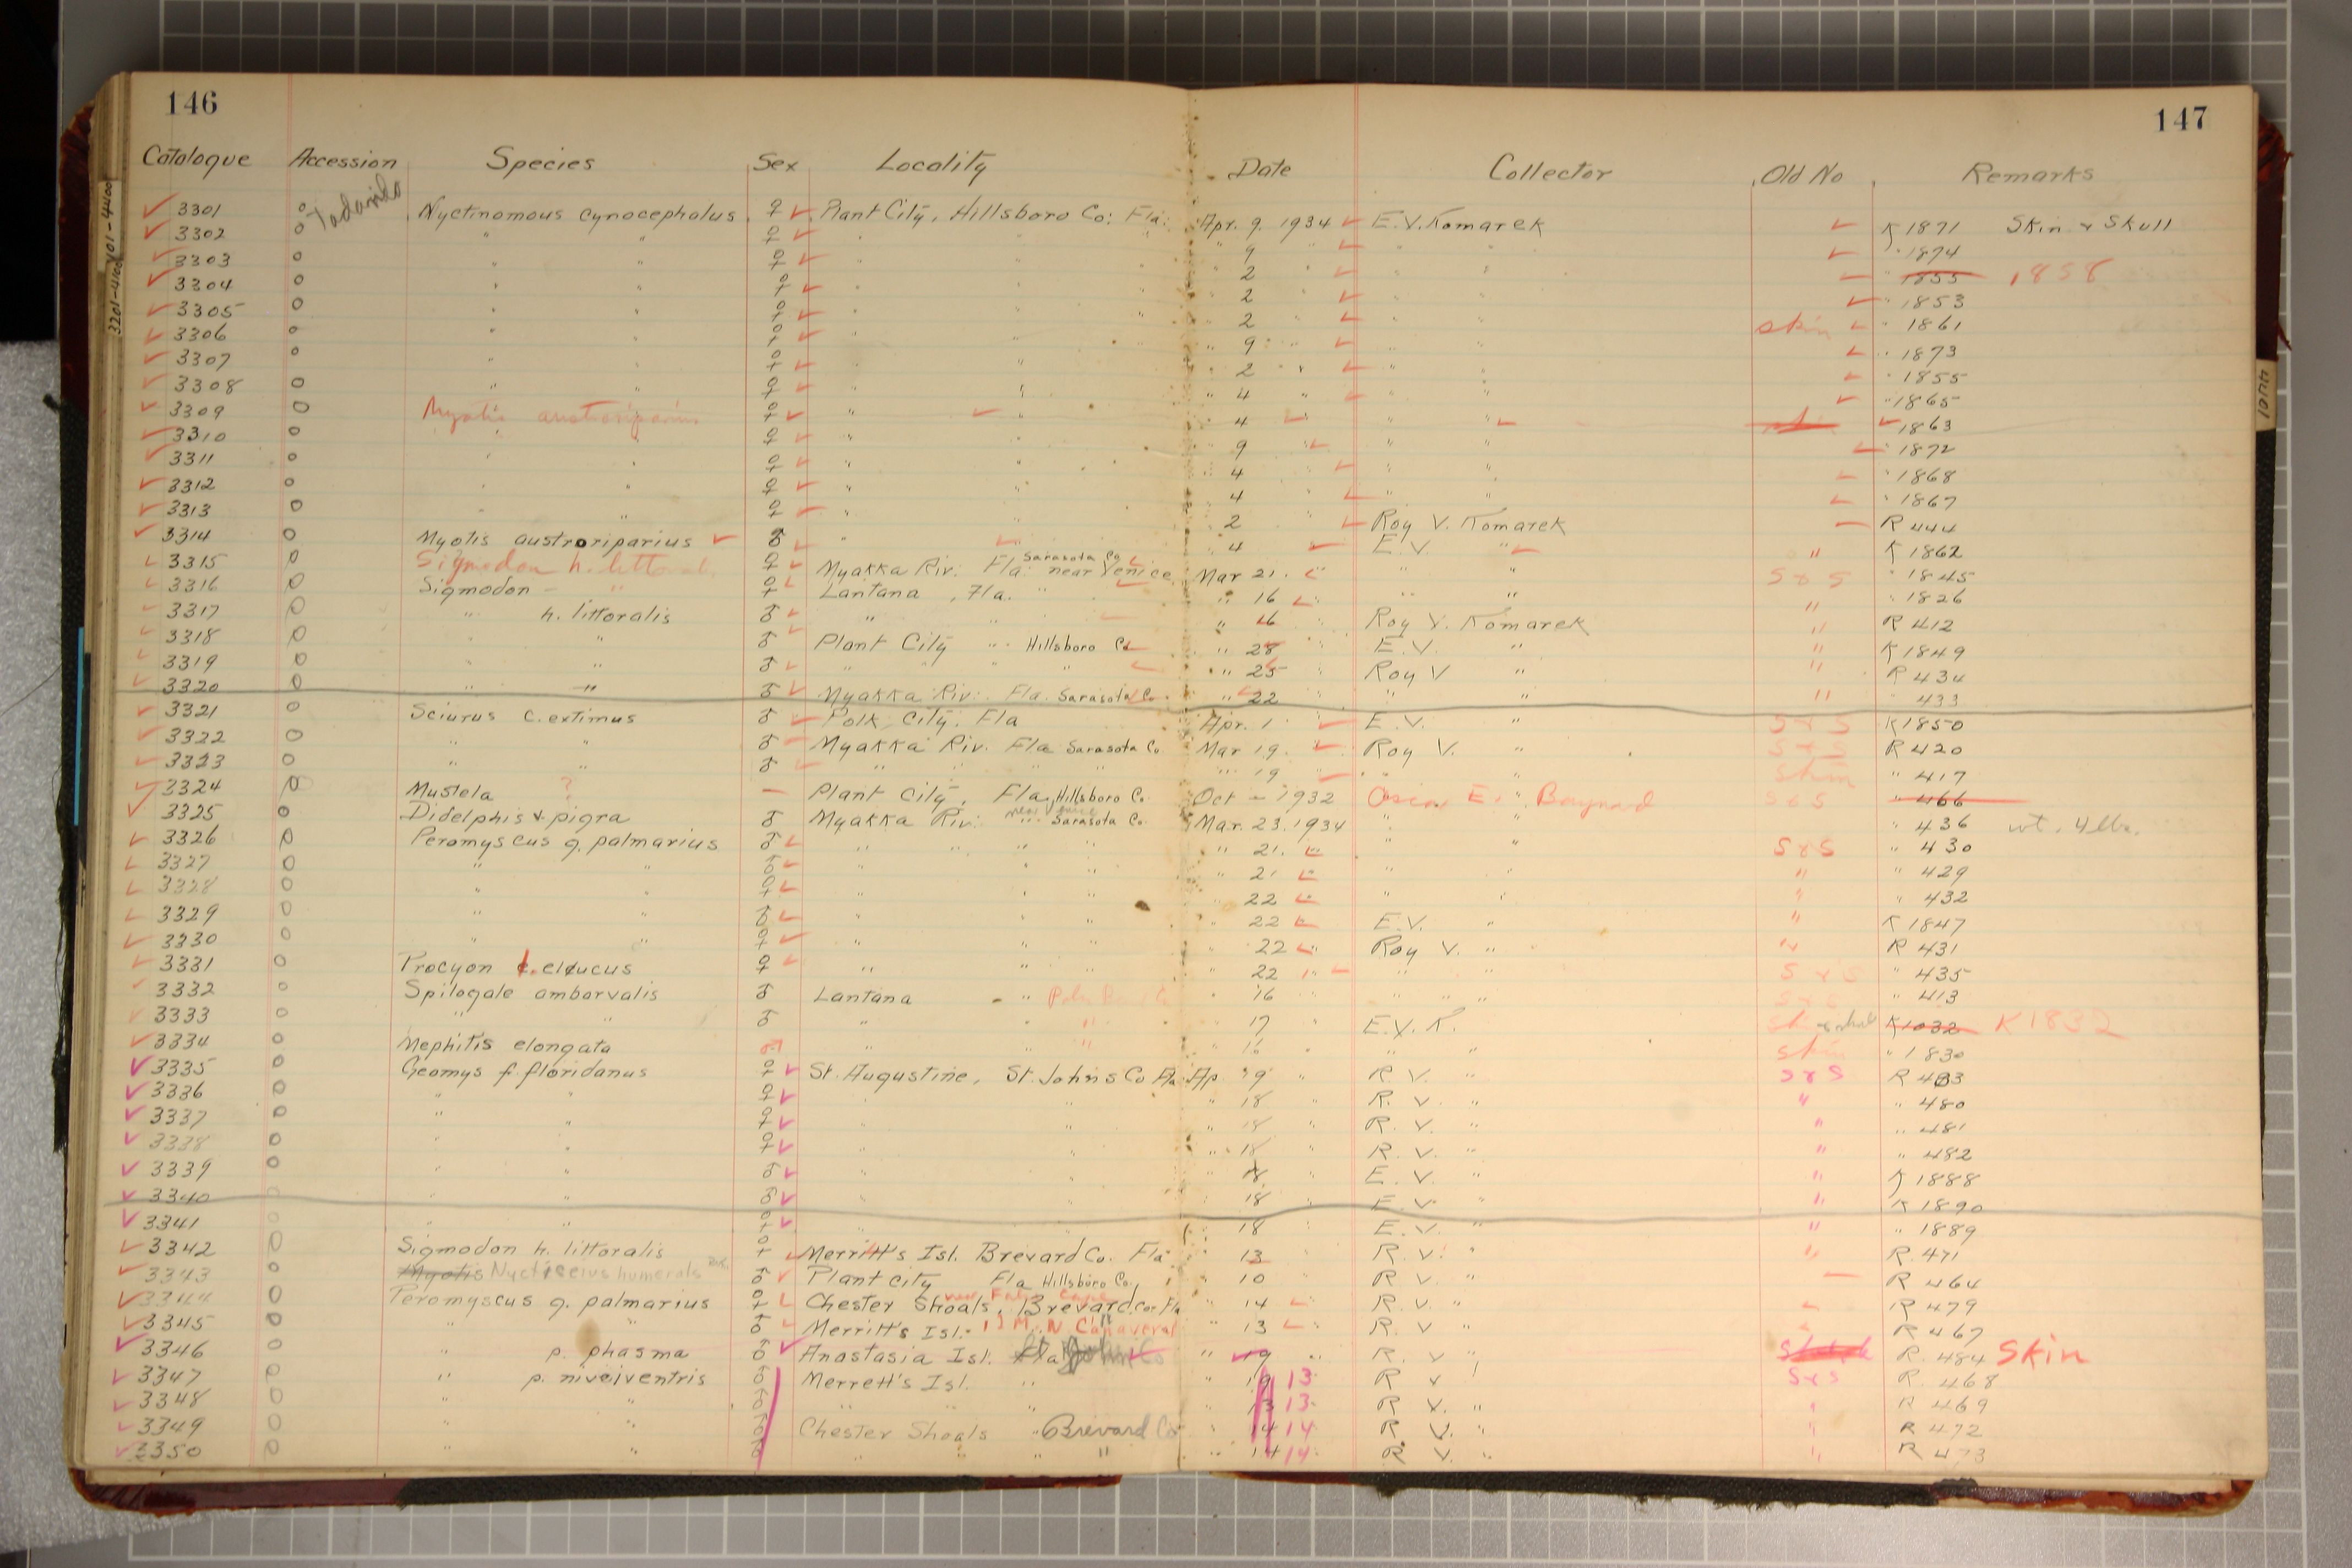 146
147
Catalogue Accession Species Sex Locality Date Collector Old No Remarks
3301 o Tadarida Nyctinomous cynocephalus ♀ Plant City, Hillsboro Co: Fla: Apr. 9. 1934 E.V. Komarek K 1871 Skin & Skull
3302 o " " ♀ " " " 9 " " " " 1874
3303 o " " ♀ " " " 2 " " " " 1855 1858
3304 o " " ♀ " " " 2 " " " " 1853
3305 o " " ♀ " " " 2 " " " skin " 1861
3306 o " " ♀ " " " 9 " " " " 1873
3307 o " " ♀ " " " 2 " " " " 1855
3308 o " " ♀ " " " 4 " " " " 1865
3309 o Myotis austroriparius ♀ " " " 4 " " " 1863
3310 o " " ♀ " " " 9 " " " 1872
3311 o " " ♀ " " " 4 " " " " 1868
3312 o " " ♀ " " " 4 " " " " 1867
3313 o " " ♀ " " 2 Roy V. Komarek R 444
3314 o Myotis austroriparius ♂ " " 4 E.V. " " K 1862
3315 o Sigmodon h. littoralis ♀ Myakka Riv. Fla. near Venice Sarasota Co Mar 21. " " S & S " 1845
3316 o Sigmodon " ♀ Lantana, Fla. " " 16 " " " " 1826
3317 o " h. littoralis ♂ " " " 16 Roy V. Komarek " R 412
3318 o " " ♂ Plant City " Hillsboro Co " 28 E.V. " " K 1849
3319 o " " ♂ " " " " " 25 Roy V " " R 434
3320 o " " ♂ Myakka Riv. Fla. Sarasota Co. " 22 " " " " 433
3321 o Sciurus c. extimus ♂ Polk City. Fla Apr. 1 E.V. " S & S K 1850
3322 o " " ♂ Myakka Riv. Fla Sarasota Co Mar 19. Roy V. " S & S R 420
3323 o " " ♂ " " " " " 19 " " Skin " 417
3324 o Mustela ? — Plant City, Fla, Hillsboro Co. Oct - 1932 Oscar E. Baynard S & S " 466
3325 o Didelphis v. pigra ♂ Myakka Riv. near Venice " Sarasota Co. Mar. 23. 1934 " " " 436 wt. 4 lbs.
3326 o Peromyscus g. palmarius ♂ " " " " " 21. " " S & S " 430
3327 o " " ♂ " " " " 21 " " " " 429
3328 o " " ♀ " " " " 22 " " " " 432
3329 o " " ♂ " " " " 22 E.V. " " K 1847
3330 o " " ♀ " " " " 22 Roy V. " " R 431
3331 o Procyon l. elucus ♀ " " " " 22 " " S & S " 435
3332 o Spilogale ambarvalis ♂ Lantana " Palm Beach Co " 16 " " " S & S " 413
3333 o " " ♂ " " " " 17 E.V.K. & skull K 1032 K 1832
3334 o Mephitis elongata ♂ " " " " 16 " " " skin " 1830
3335 o Geomys f. floridanus ♀ St. Augustine, St. Johns Co Fla Ap. 19 " R.V. " S & S R 483
3336 o " " ♀ " " " 18 " R. V. " " " 480
3337 o " " ♀ " " " 18 " R. V. " " " 481
3338 o " " ♀ " " " 18 " R. V. " " " 482
3339 o " " ♂ " " " 18 " E. V. " " K 1888
3340 o " " ♂ " " " 18 " E. V. " " K 1890
3341 o " " ♀ " " " 18 " E. V. " " " 1889
3342 o Sigmodon h. littoralis ♀ Merritt's Isl. Brevard Co. Fla " 13 R.V. " " R. 471
3343 o Myotis Nycticeius humeralis ♂ Plant City Fla Hillsboro Co. " 10 R V. " R 464
3344 o Peromyscus g. palmarius ♀ Chester Shoals, Brevard Co. Fla " 14 R. V. " R 479
3345 o " " ♂ Merritt's Isl. 12 M. N. Canaveral " 13 R. V " R 467
3346 o " p. phasma ♂ Anastasia Isl. Fla " 19 " R. V " R. 484 Skin
3347 o " p. niveiventris ♂ Merrett's Isl. " " 19 13 R V " S & S R. 468
3348 o " " " " " " 13 13 R V. " " R 469
3349 o " " Chester Shoals " Brevard Co " 14 14 R V. " " R 472
3350 o " " " " " " 14 14 R V. " " R 473
3201-4100